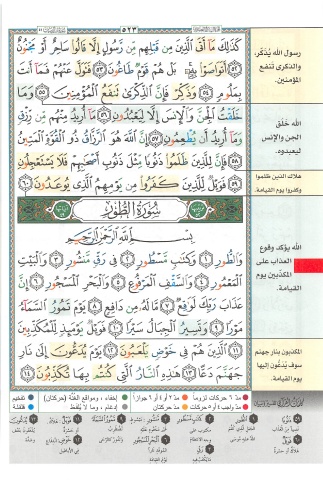 ٥٢٣
كَذَٰلِكَ مَآ أَتَى ٱلَّذِينَ مِن قَبْلِهِم مِّن رَّسُولٍ إِلَّا قَالُوا۟ سَاحِرٌ أَوْ مَجْنُونٌ
٥٢ أَتَوَاصَوْا۟ بِهِۦ بَلْ هُمْ قَوْمٌ طَاغُونَ ٥٣ فَتَوَلَّ عَنْهُمْ فَمَآ أَنتَ
بِمَلُومٍ ٥٤ وَذَكِّرْ فَإِنَّ ٱلذِّكْرَىٰ تَنفَعُ ٱلْمُؤْمِنِينَ ٥٥ وَمَا
خَلَقْتُ ٱلْجِنَّ وَٱلْإِنسَ إِلَّا لِيَعْبُدُونِ ٥٦ مَآ أُرِيدُ مِنْهُم مِّن رِّزْقٍ
وَمَآ أُرِيدُ أَن يُطْعِمُونِ ٥٧ إِنَّ ٱللَّهَ هُوَ ٱلرَّزَّاقُ ذُو ٱلْقُوَّةِ ٱلْمَتِينُ
٥٨ فَإِنَّ لِلَّذِينَ ظَلَمُوا۟ ذَنُوبًا مِّثْلَ ذَنُوبِ أَصْحَٰبِهِمْ فَلَا يَسْتَعْجِلُونِ
٥٩ فَوَيْلٌ لِّلَّذِينَ كَفَرُوا۟ مِن يَوْمِهِمُ ٱلَّذِى يُوعَدُونَ ٦٠
سُورَةُ الطُّورِ
بِسْمِ ٱللَّهِ ٱلرَّحْمَٰنِ ٱلرَّحِيمِ
وَٱلطُّورِ ١ وَكِتَٰبٍ مَّسْطُورٍ ٢ فِى رَقٍّ مَّنشُورٍ ٣ وَٱلْبَيْتِ
ٱلْمَعْمُورِ ٤ وَٱلسَّقْفِ ٱلْمَرْفُوعِ ٥ وَٱلْبَحْرِ ٱلْمَسْجُورِ ٦ إِنَّ
عَذَابَ رَبِّكَ لَوَٰقِعٌ ٧ مَّا لَهُۥ مِن دَافِعٍ ٨ يَوْمَ تَمُورُ ٱلسَّمَآءُ
مَوْرًا ٩ وَتَسِيرُ ٱلْجِبَالُ سَيْرًا ١٠ فَوَيْلٌ يَوْمَئِذٍ لِّلْمُكَذِّبِينَ
١١ ٱلَّذِينَ هُمْ فِى خَوْضٍ يَلْعَبُونَ ١٢ يَوْمَ يُدَعُّونَ إِلَىٰ نَارِ
جَهَنَّمَ دَعًّا ١٣ هَٰذِهِ ٱلنَّارُ ٱلَّتِى كُنتُم بِهَا تُكَذِّبُونَ ١٤
رسول الله يُذَكِّر،
والذكرى تنفع
المؤمنين.
الله خلق
الجن والإنس
ليعبدوه.
هلاك الذين ظلموا
وكفروا يوم القيامة.
الله يؤكد وقوع
العذاب على
المكذبين يوم
القيامة.
المكذبون بنار جهنم
سوف يُدعّون إليها
يوم القيامة.